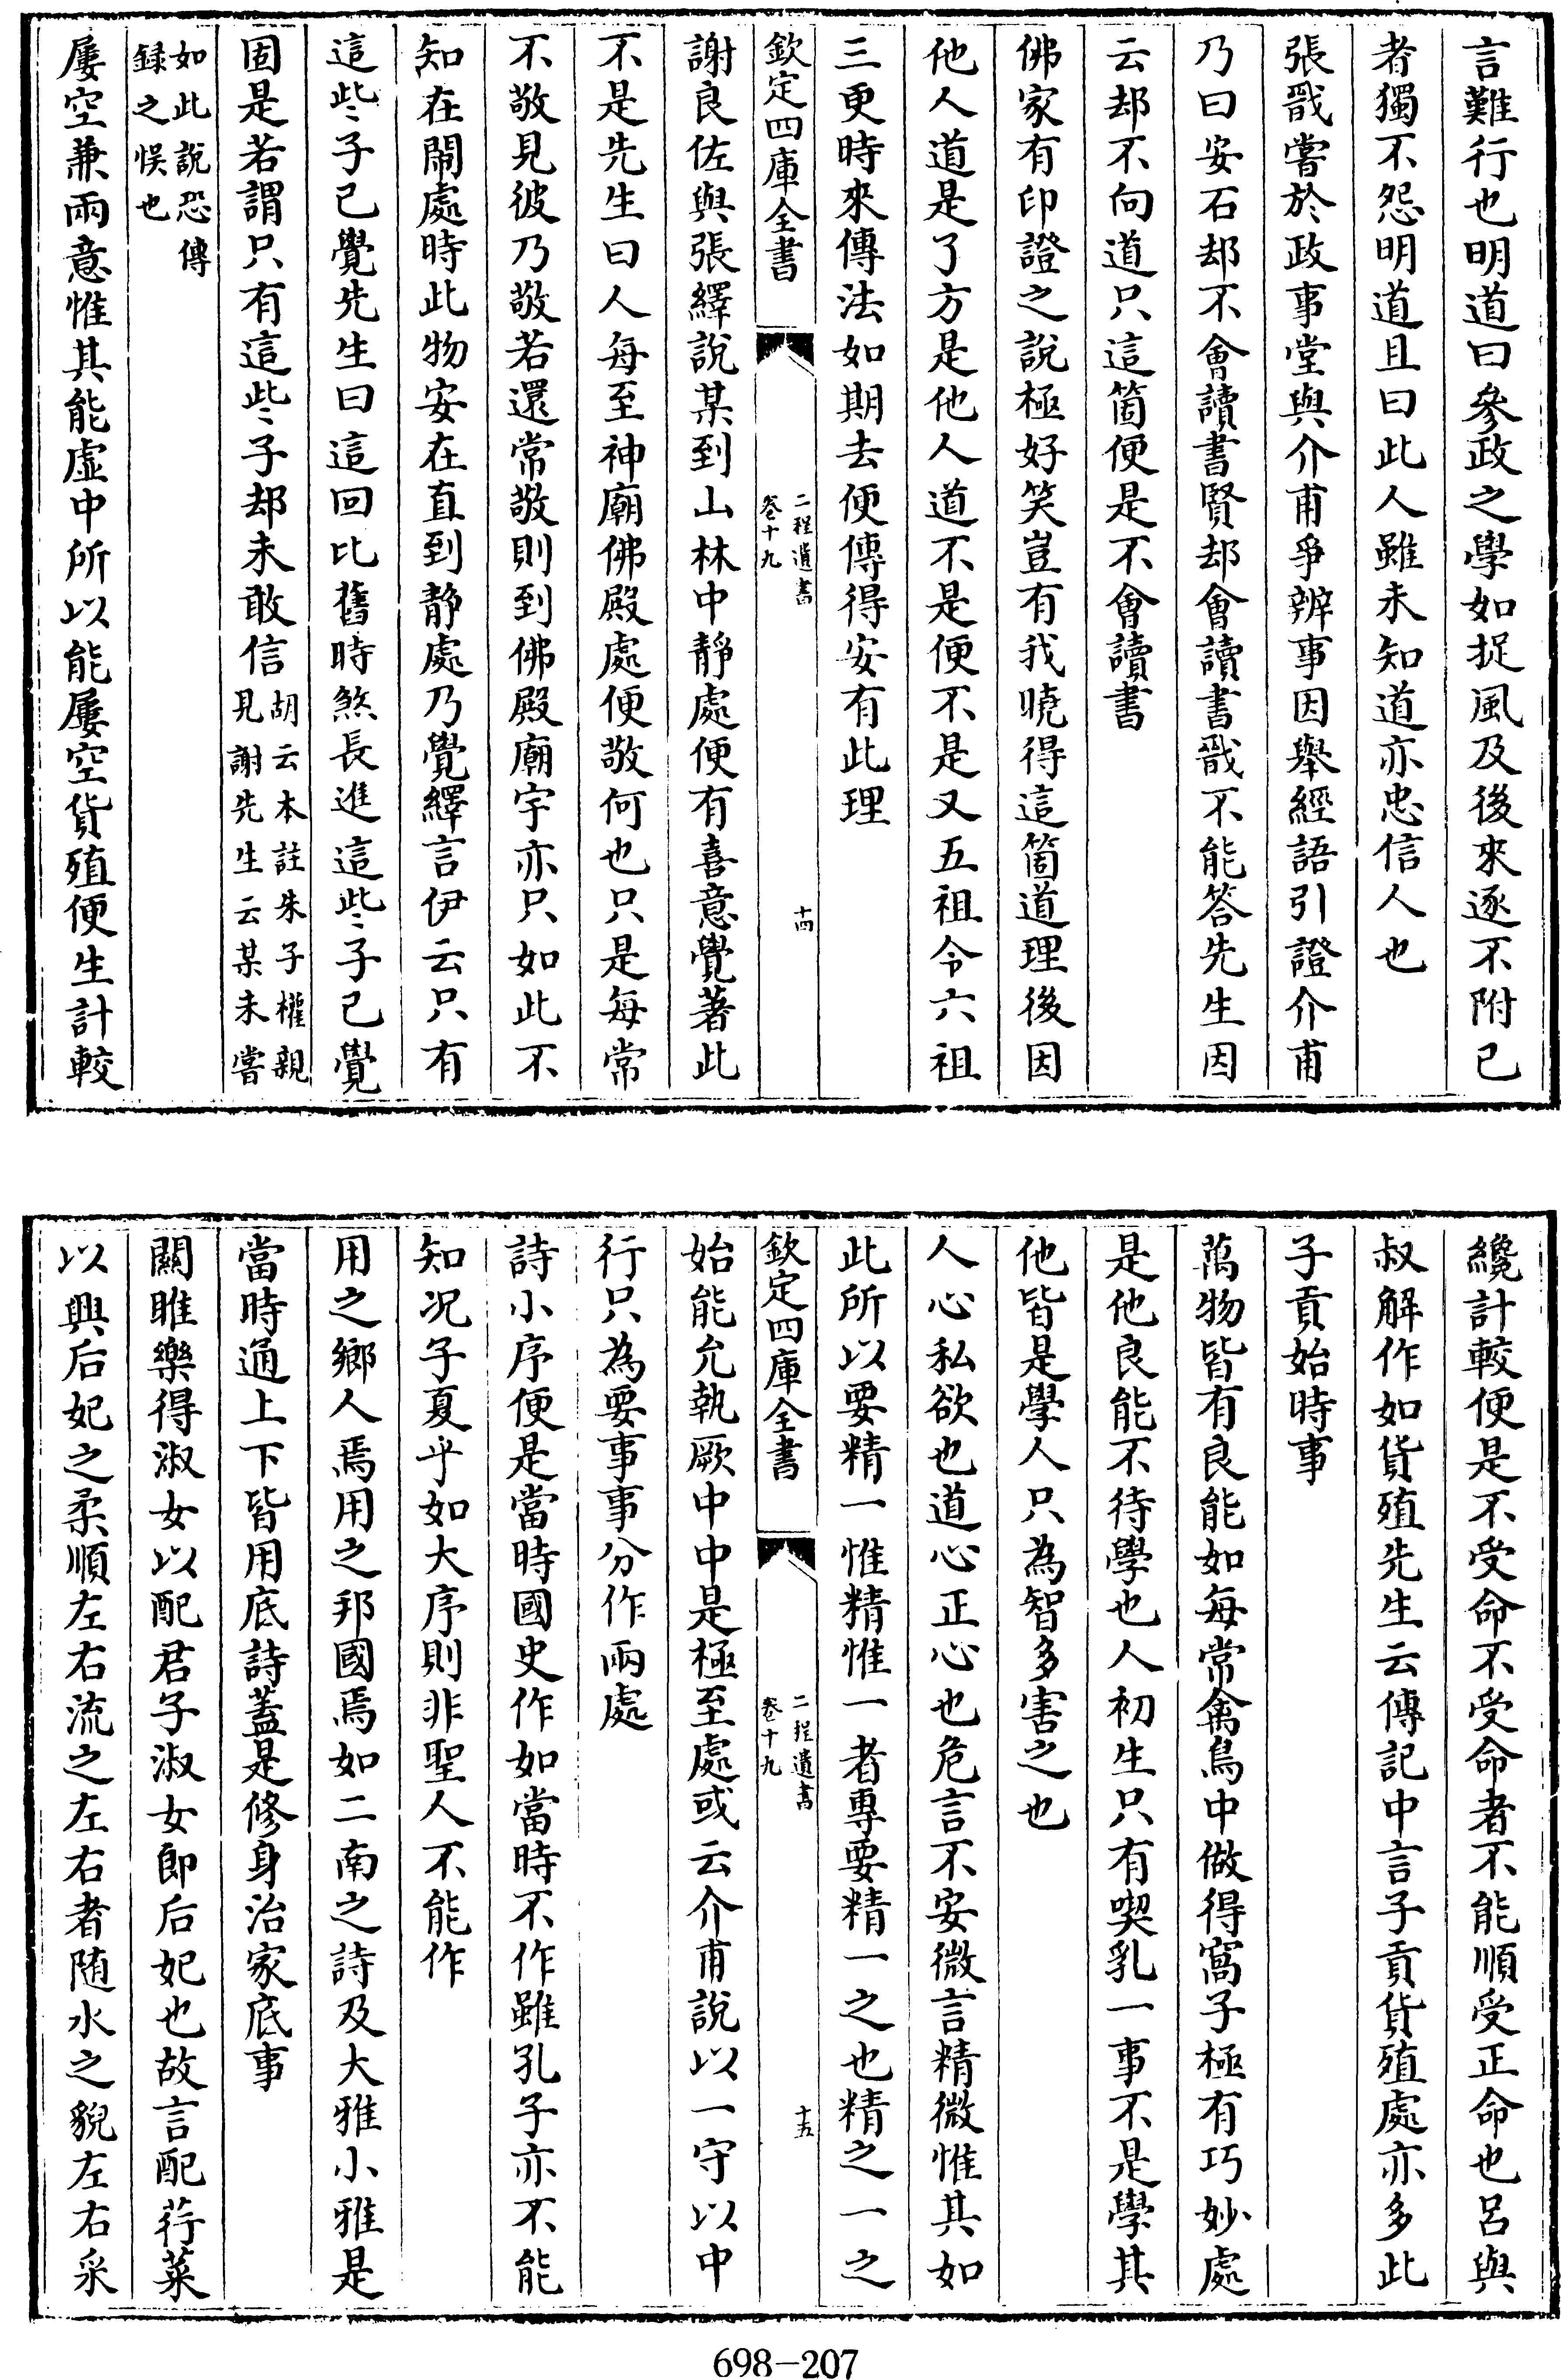 言難行也明道曰參政之學如捉風及後來逐不附己
者獨不怨明道且曰此人雖未知道亦忠信人也
張戬嘗於政事堂與介甫爭辨事因舉經語引證介甫
乃曰安石却不會讀書賢却會讀書戬不能答先生因
云却不向道只這箇便是不會讀書
佛家有印證之說極好笑豈有我曉得這箇道理後因
他人道是了方是他人道不是便不是又五祖令六祖
三更時來傳法如期去便傳得安有此理
欽定四庫全書
二程遺書
卷十九
十四
謝良佐與張繹說某到山林中靜處便有喜意覺著此
不是先生曰人每至神廟佛殿處便敬何也只是每常
不敬見彼乃敬若還常敬則到佛殿廟宇亦只如此不
知在鬧處時此物安在直到靜處乃覺繹言伊云只有
這些子已覺先生曰這回比舊時煞長進這些子已覺
固是若謂只有這些子却未敢信胡云本註朱子權親
見謝先生云某未嘗
如此說恐傳
録之悮也
屢空兼兩意惟其能虛中所以能屢空貨殖便生計較
纔計較便是不受命不受命者不能順受正命也呂與
叔解作如貨殖先生云傳記中言子貢貨殖處亦多此
子貢始時事
萬物皆有良能如每常禽鳥中做得窩子極有巧妙處
是他良能不待學也人初生只有喫乳一事不是學其
他皆是學人只為智多害之也
人心私欲也道心正心也危言不安微言精微惟其如
此所以要精一惟精惟一者專要精一之也精之一之
欽定四庫全書
二程遺書
卷十九
十五
始能允執厥中中是極至處或云介甫說以一守以中
行只為要事事分作兩處
詩小序便是當時國史作如當時不作雖孔子亦不能
知况子夏乎如大序則非聖人不能作
用之鄉人焉用之邦國焉如二南之詩及大雅小雅是
當時通上下皆用底詩蓋是修身治家底事
關雎樂得淑女以配君子淑女即后妃也故言配荇菜
以興后妃之柔順左右流之左右者随水之貌左右采
698-207